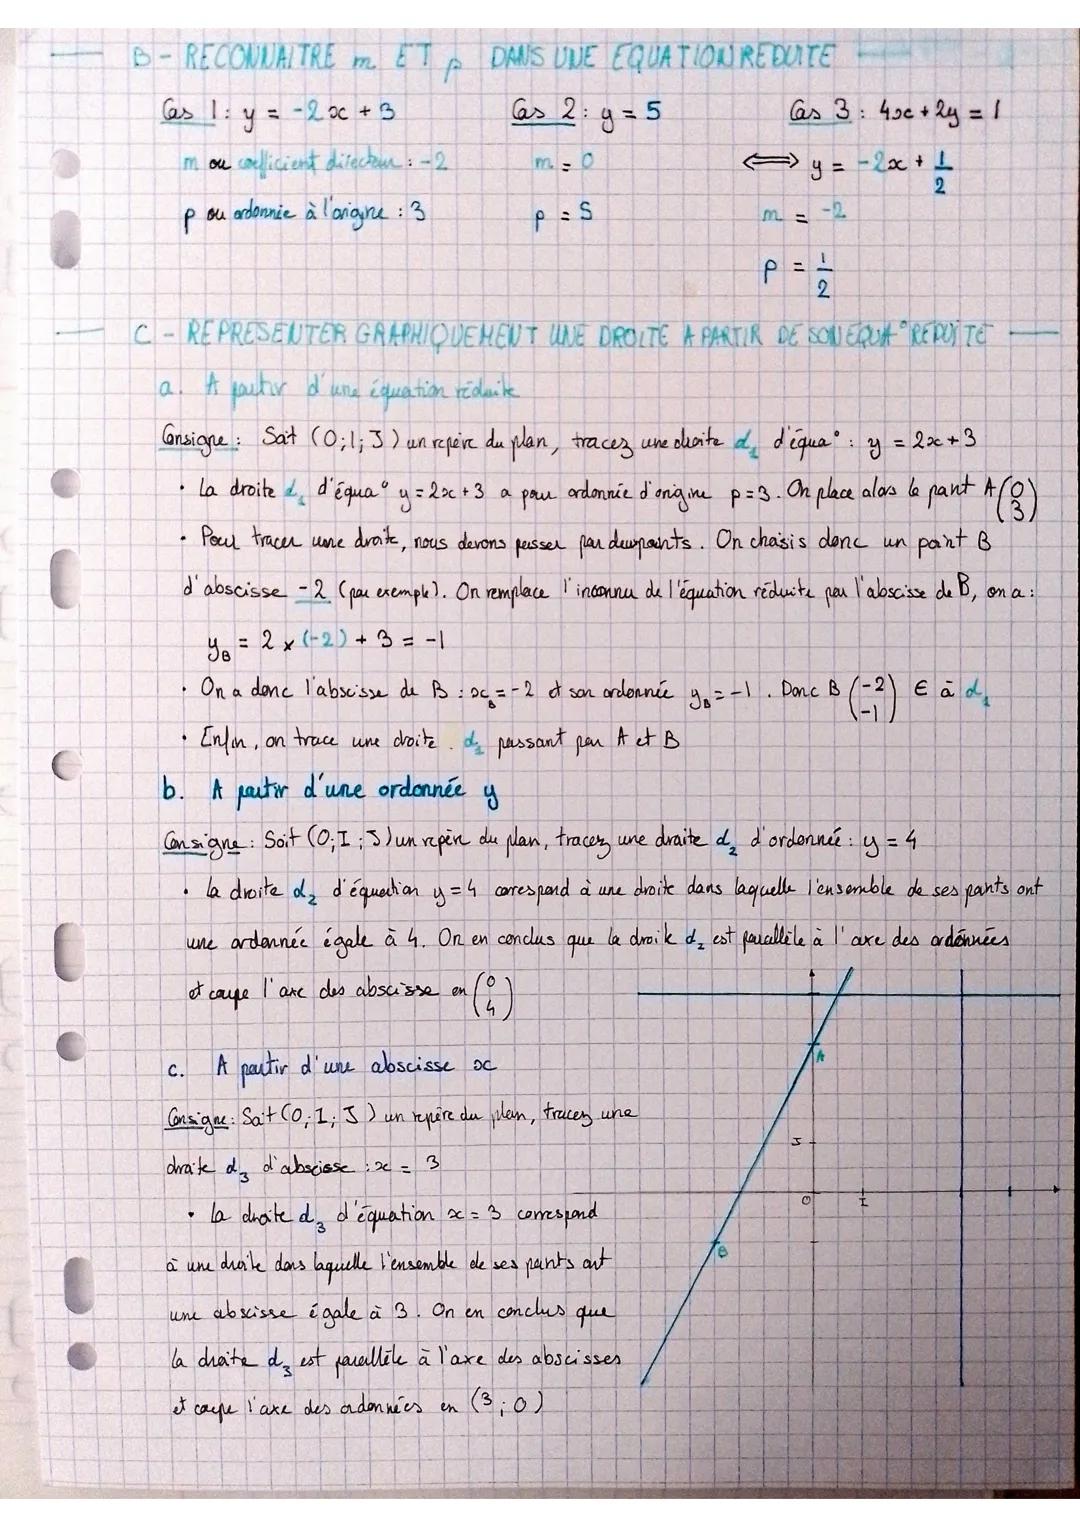 B - RECONNAITRE m ET p DANS UNE EQUATION REDUITE
Cas 1 : y = -2x + 3
m ou coefficient directeur : -2
p ou ordonnée à l'origine : 3
Cas 2 : y = 5
m = 0
p = 5
Cas 3 : 4x + 2y = 1
⟺ y = -2x + 1/2
m = -2
p = 1/2
C - REPRESENTER GRAPHIQUEMENT UNE DROITE A PARTIR DE SON EQUA° REDUITE
a. A partir d'une équation réduite
Consigne : Soit (O; I; J) un repère du plan, tracez une droite d₁ d'équa° : y = 2x + 3
• La droite d₁ d'équa° y = 2x + 3 a pour ordonnée d'origine p = 3. On place alors le point A (0 3)
• Pour tracer une droite, nous devons passer par deux points. On choisis donc un point B
d'abscisse -2 (par exemple). On remplace l'inconnu de l'équation réduite par l'abscisse de B, on a :
y_B = 2 × (-2) + 3 = -1
• On a donc l'abscisse de B : x_B = -2 et son ordonnée y_B = -1. Donc B (-2 -1) ∈ à d₁
• Enfin, on trace une droite d₁ passant par A et B
b. A partir d'une ordonnée y
Consigne : Soit (O; I; J) un repère du plan, tracez une droite d₂ d'ordonnée : y = 4
• La droite d₂ d'équation y = 4 correspond à une droite dans laquelle l'ensemble de ses points ont
une ordonnée égale à 4. On en conclus que la droite d₂ est parallèle à l'axe des ordonnées
et coupe l'axe des abscisse en (0 4)
c. A partir d'une abscisse x
Consigne : Soit (O; I; J) un repère du plan, tracez une
droite d₃ d'abscisse : x = 3
• La droite d₃ d'équation x = 3 correspond
à une droite dans laquelle l'ensemble de ses points ont
une abscisse égale à 3. On en conclus que
la droite d₃ est parallèle à l'axe des abscisses
et coupe l'axe des ordonnées en (3 ; 0)
A
J
O
I
B